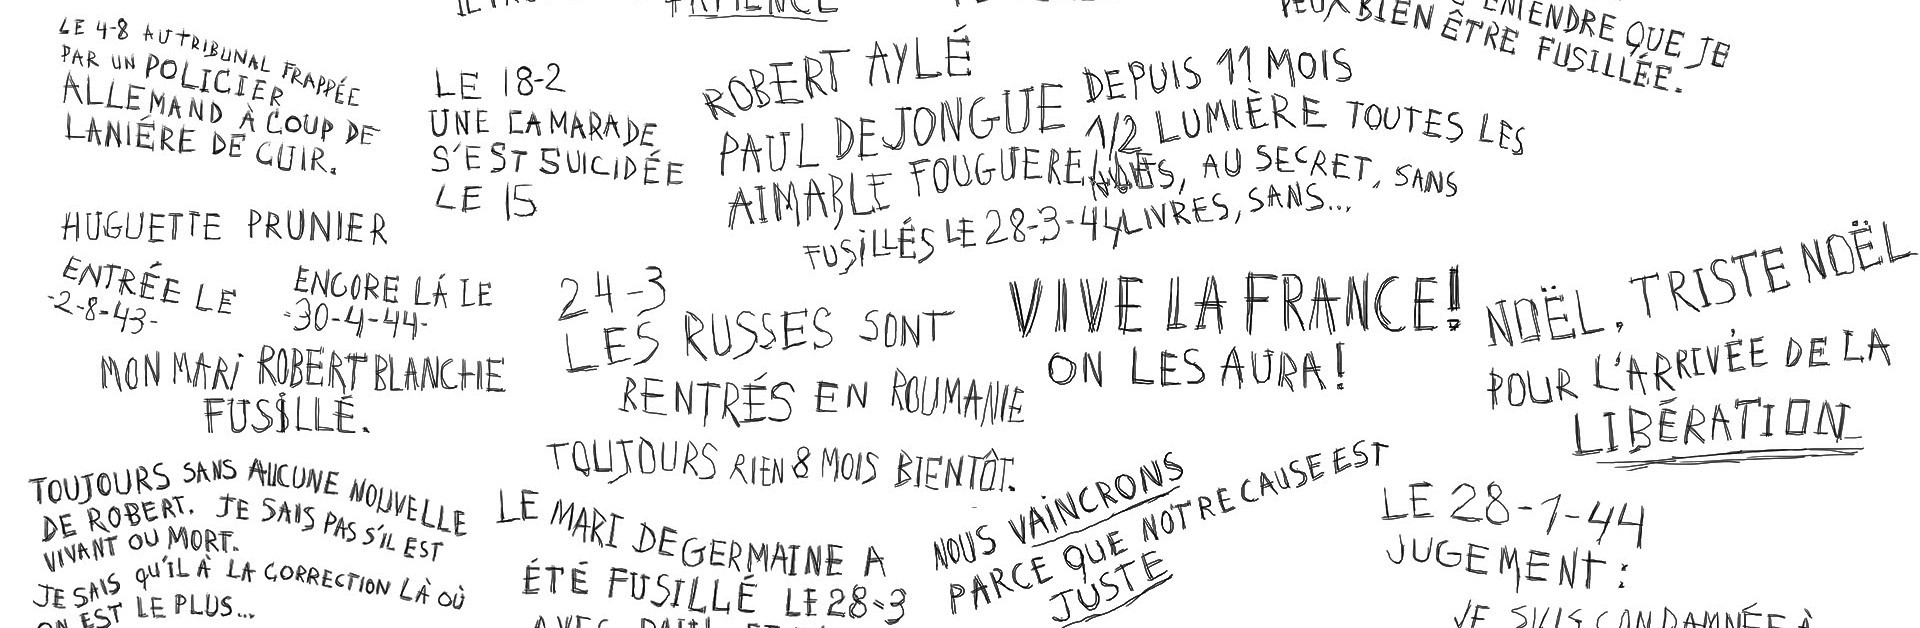 PATIENCE
ENTENDRE QUE JE
PEUX BIEN ÊTRE FUSILLÉE.
LE 4-8 AU TRIBUNAL FRAPPÉE
PAR UN POLICIER
ALLEMAND À COUP DE
LANIÉRE DE CUIR.
LE 18-2
UNE CAMARADE
S'EST SUICIDÉE
LE 15
ROBERT AYLÉ
PAUL DEJONGUE
AIMABLE FOUGUERE
FUSILLÉS LE 28-3-44
DEPUIS 11 MOIS
1/2 LUMIÈRE TOUTES LES
AU SECRET, SANS
LIVRES, SANS...
HUGUETTE PRUNIER
ENTRÉE LE
-2-8-43-
ENCORE LÁ LE
-30-4-44-
MON MARI ROBERT BLANCHE
FUSILLÉ.
24-3
LES RUSSES SONT
RENTRÉS EN ROUMANIE
TOUJOURS RIEN 8 MOIS BIENTÔT.
VIVE LA FRANCE!
ON LES AURA!
NOËL, TRISTE NOËL
POUR L'ARRIVÉE DE LA
LIBÉRATION
TOUJOURS SANS AUCUNE NOUVELLE
DE ROBERT. JE SAIS PAS S'IL EST
VIVANT OU MORT.
JE SAIS qU'IL À LA CORRECTION LÀ OÙ
ON EST LE PLUS...
LE MARI DE GERMAINE A
ÉTÉ FUSILLÉ LE 28-3
NOUS VAINCRONS
PARCE QUE NOTRE CAUSE EST
JUSTE
LE 28-1-44
JUGEMENT :
JE SUIS CONDAMNÉE À